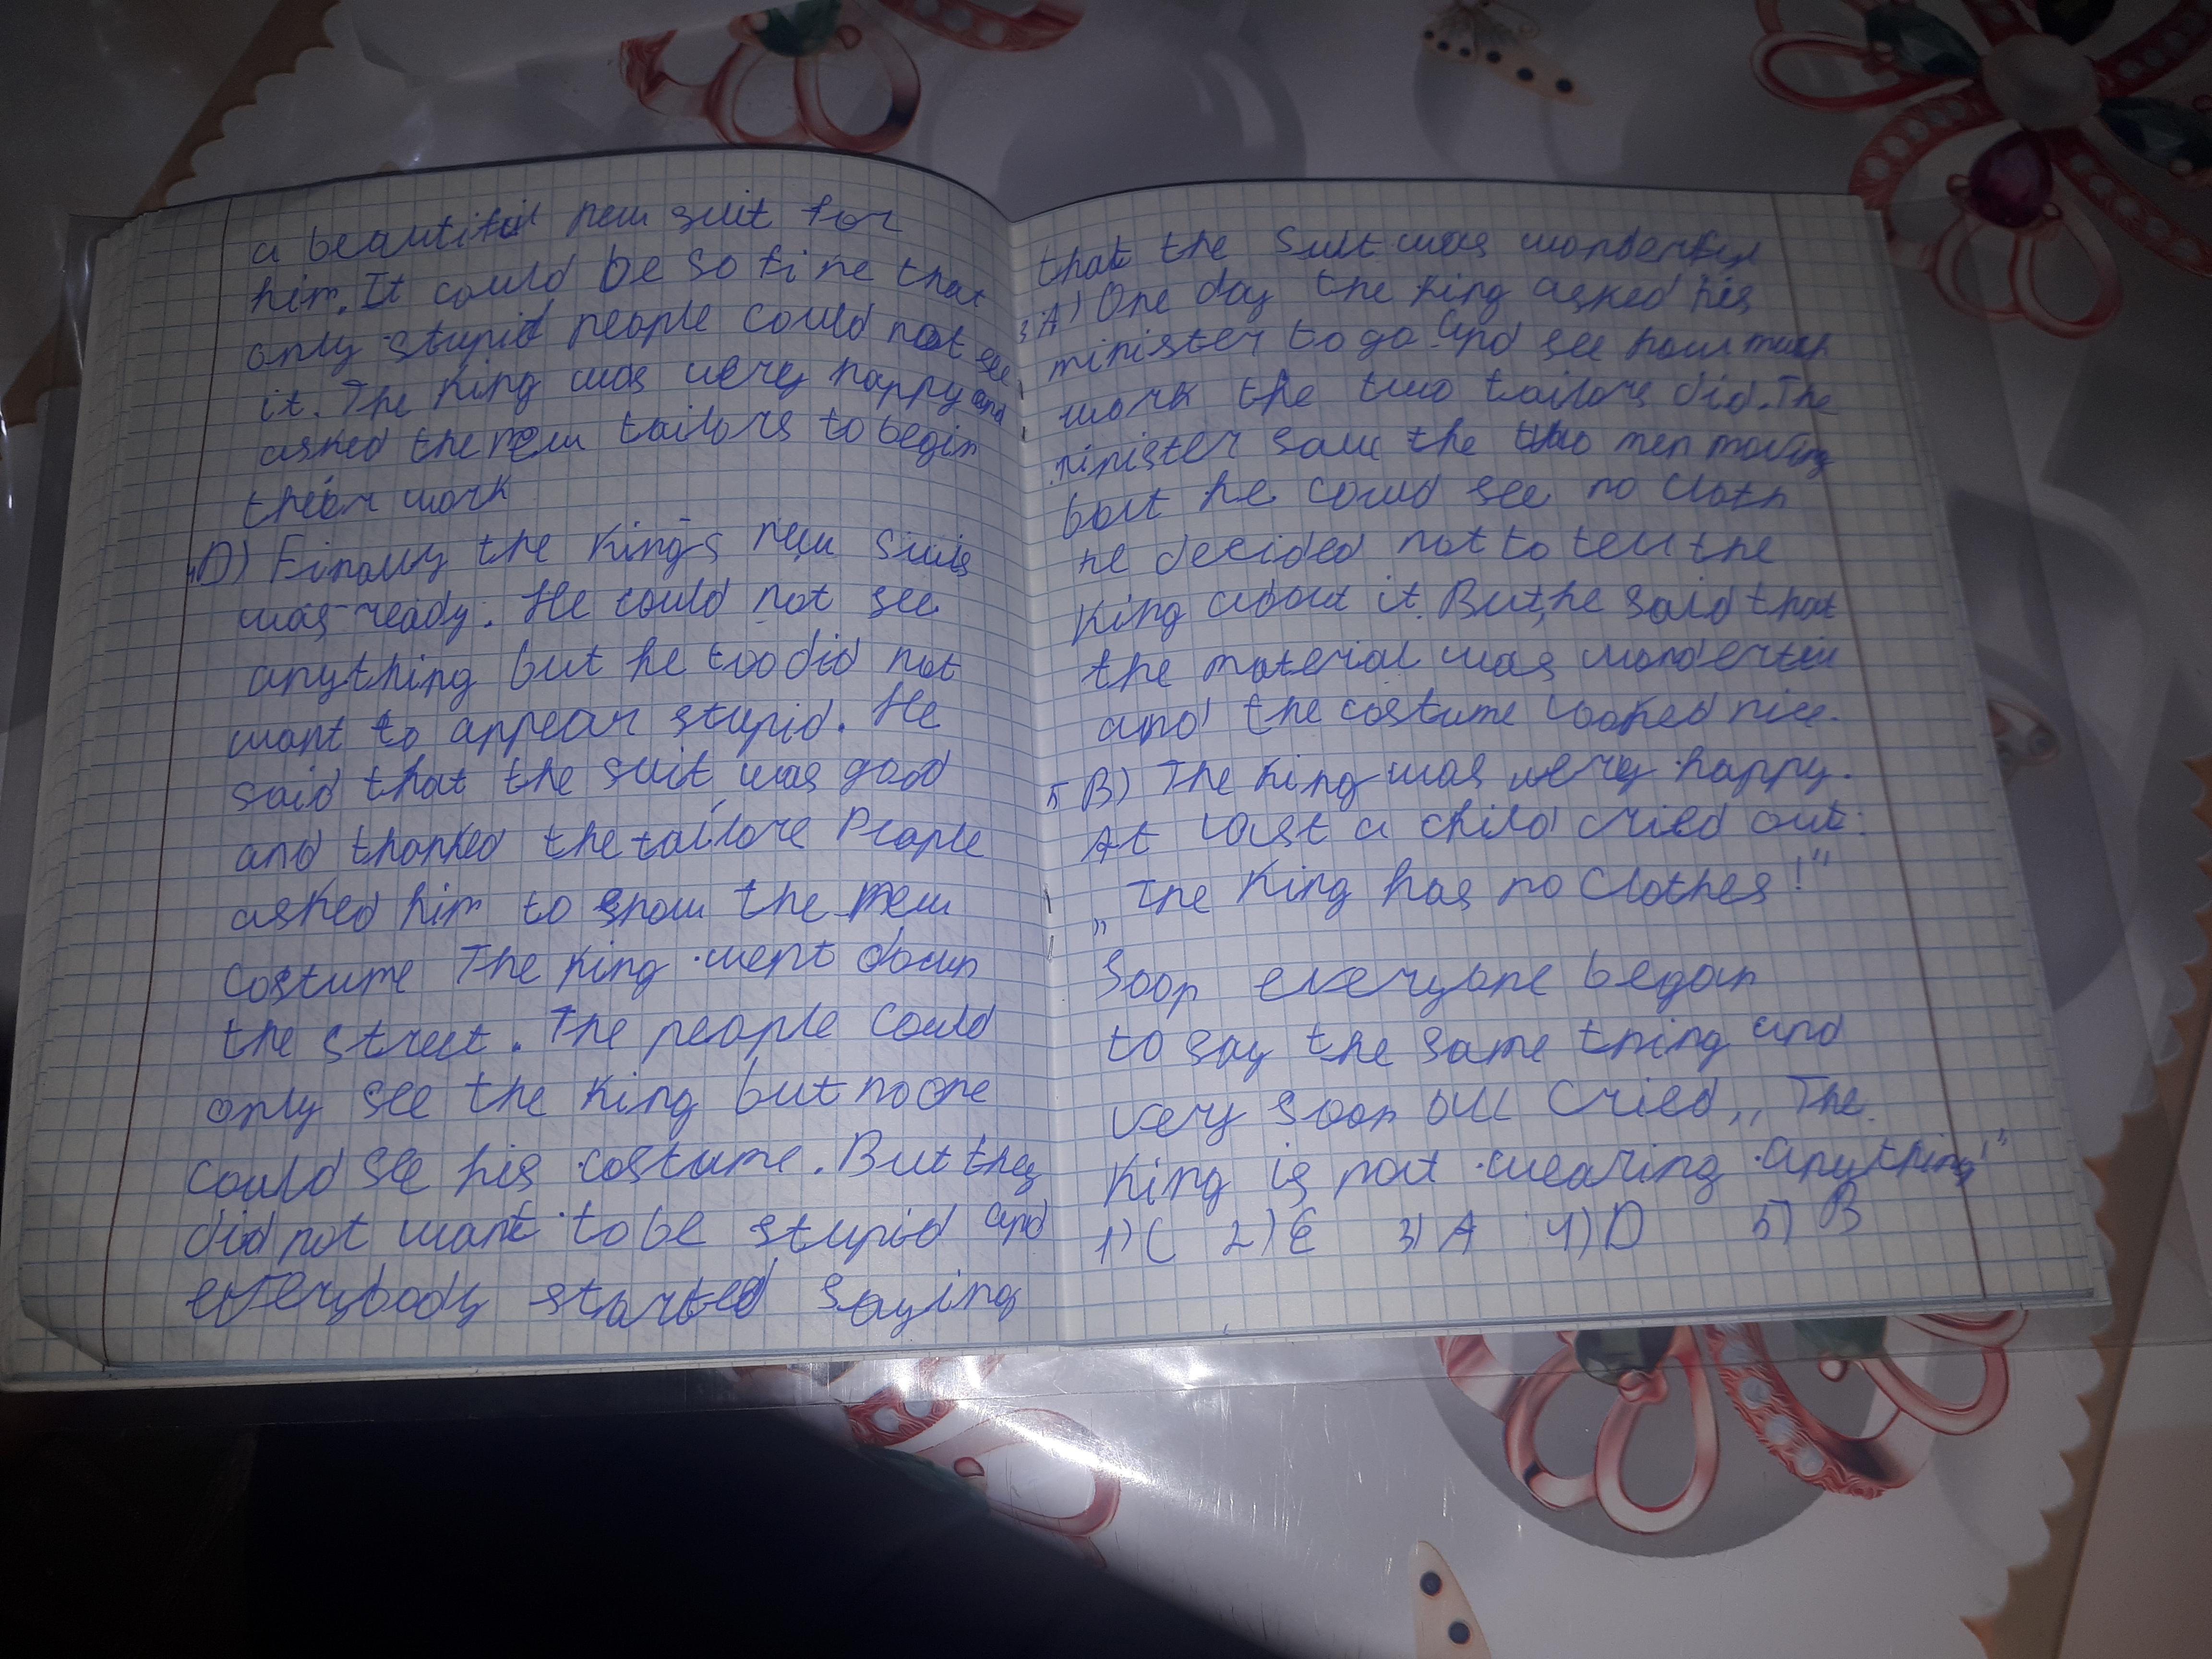 a beautiful new suit for
him. It could be so fine that
only stupid people could not see
it. The King was very happy and
asked the new tailors to begin
their work
4 D) Finally the King's new suit
was ready. He could not see
anything but he too did not
want to appear stupid. He
said that the suit was good
and thanked the tailore People
asked him to show the new
costume The King went down
the street. The people could
only see the King but no one
could see his costume. But they
did not want to be stupid and
everybody started saying
that the suit was wonderful
3 A) One day the King asked his
minister to go and see how much
work the two tailors did. The
minister saw the two men moving
but he could see no cloth
he decided not to tell the
King about it. But he said that
the material was wonderful
and the costume looked nice.
5 B) The King was very happy.
At last a child cried out:
„The King has no Clothes!"
Soon everyone began
to say the same thing and
very soon all cried „The
King is not wearing anything!"
1) C 2) E 3) A 4) D 5) B